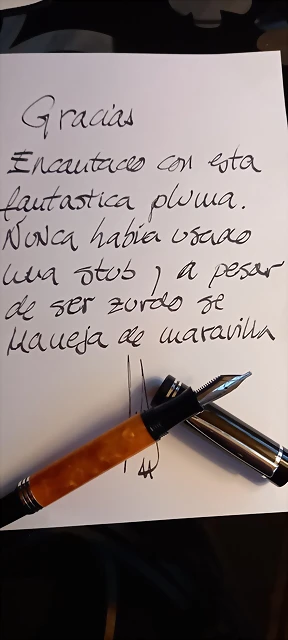 Gracias
Encantado con esta
fantastica pluma.
Nunca había usado
una stub y a pesar
de ser zurdo se
maneja de maravilla